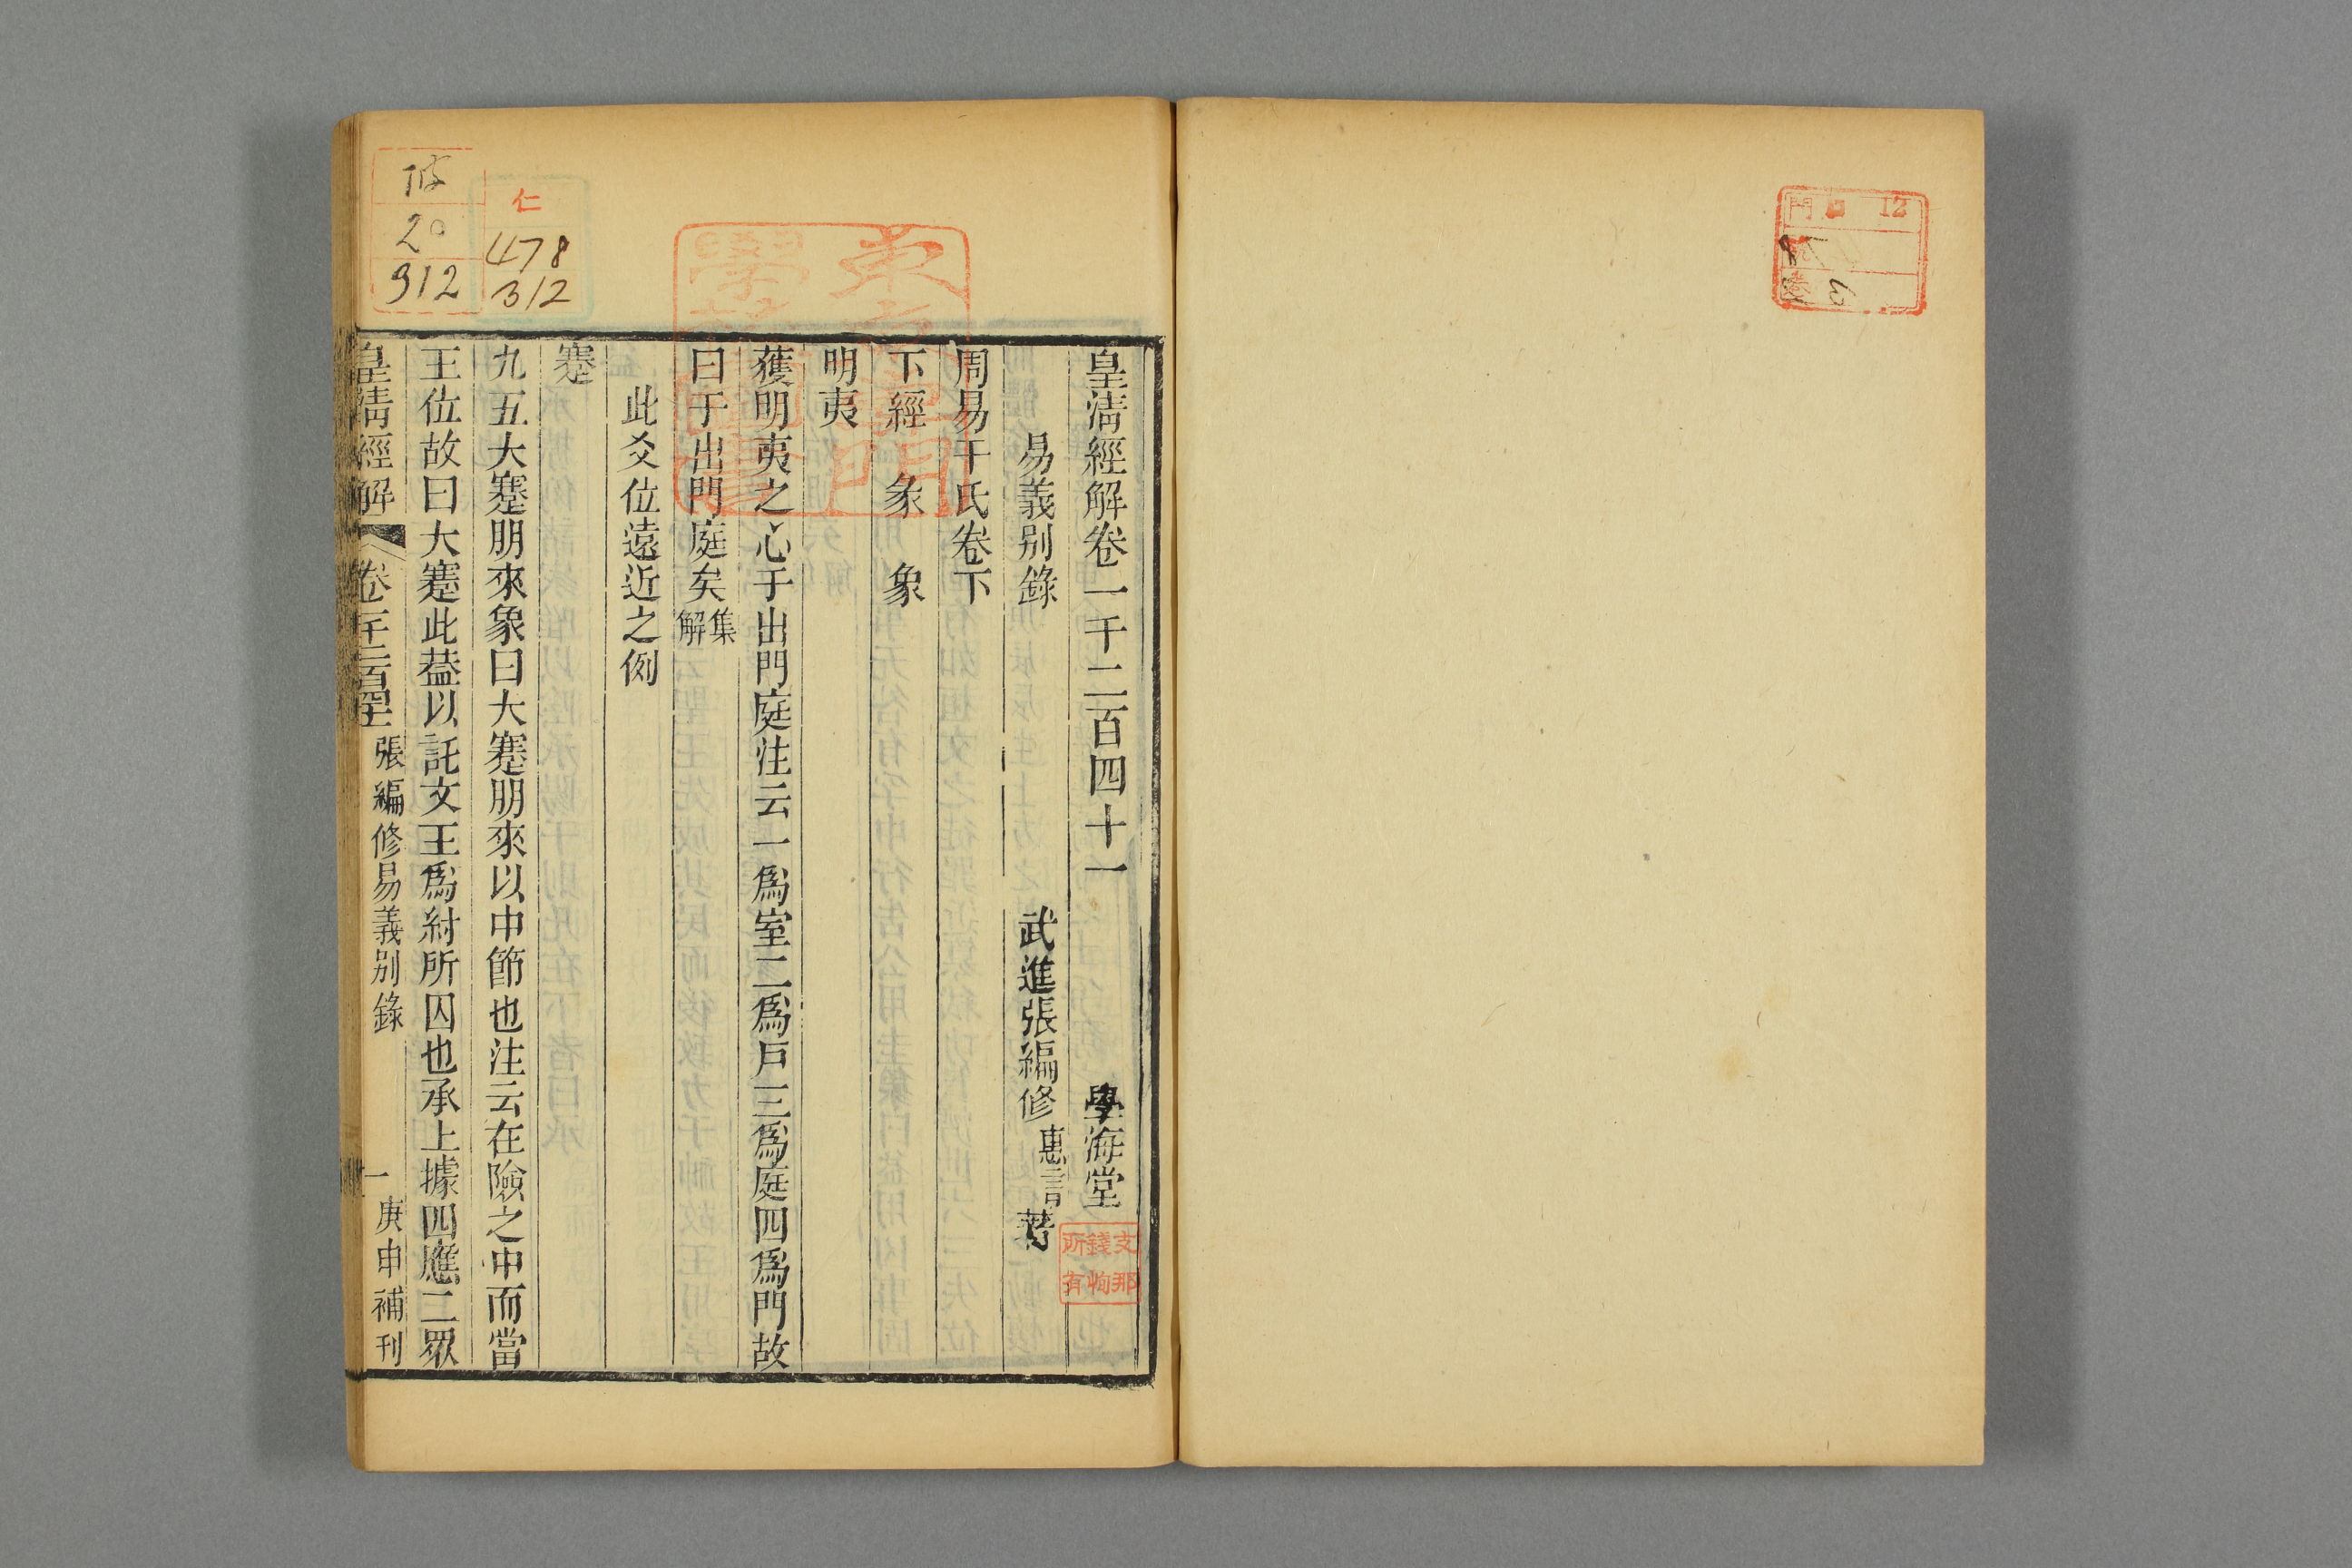 皇淸經解卷一千二百四十一　學海堂
易義別錄　武進張編修惠言著
周易干氏卷下
下經　彖　象
明夷
獲明夷之心于出門庭注云一爲室二爲戶三爲庭四爲門故
曰于出門庭矣集解
此爻位遠近之例
蹇
九五大蹇朋來象曰大蹇朋來以中節也注云在險之中而當
王位故曰大蹇此葢以託文王爲紂所囚也承上據四應二眾
皇淸經解　卷一千二百四十一　張編修易義別錄　一　庚申補刊
支那
錢恂
所有
仁
478
312
20
312
門 12